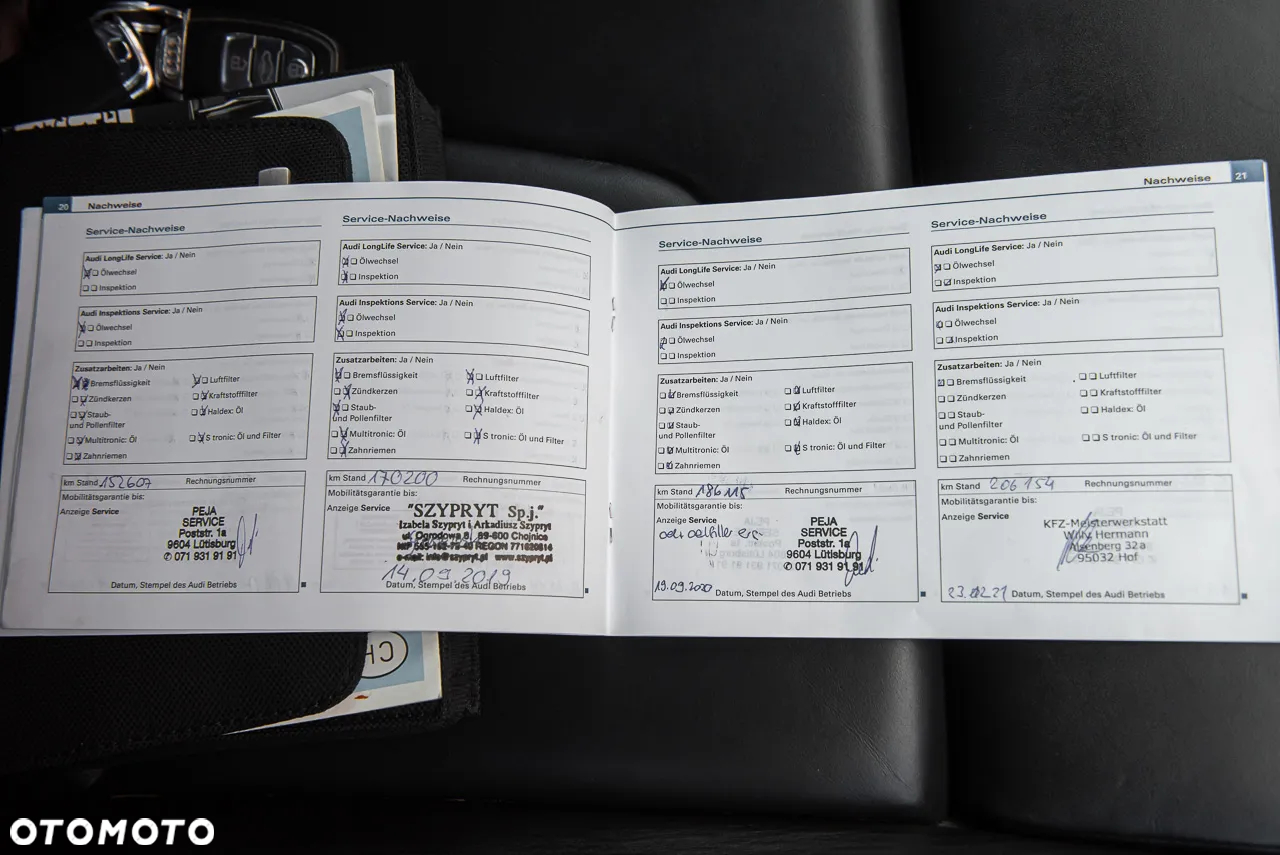 20 Nachweise
Service-Nachweise
Audi LongLife Service: Ja / Nein
Ölwechsel
Inspektion
Audi Inspektions Service: Ja / Nein
Ölwechsel
Inspektion
Zusatzarbeiten: Ja / Nein
Bremsflüssigkeit Luftfilter
Zündkerzen Kraftstofffilter
Staub- Haldex: Öl
und Pollenfilter
Multitronic: Öl S tronic: Öl und Filter
Zahnriemen
km Stand 152607 Rechnungsnummer
Mobilitätsgarantie bis:
Anzeige Service
PEJA
SERVICE
Poststr. 1a
9604 Lütisburg
✆ 071 931 91 91
Datum, Stempel des Audi Betriebs
Service-Nachweise
Audi LongLife Service: Ja / Nein
Ölwechsel
Inspektion
Audi Inspektions Service: Ja / Nein
Ölwechsel
Inspektion
Zusatzarbeiten: Ja / Nein
Bremsflüssigkeit Luftfilter
Zündkerzen Kraftstofffilter
Staub- Haldex: Öl
und Pollenfilter
Multitronic: Öl S tronic: Öl und Filter
Zahnriemen
km Stand 170200 Rechnungsnummer
Mobilitätsgarantie bis:
Anzeige Service
"SZYPRYT Sp.j."
Izabela Szypryt i Arkadiusz Szypryt
ul. Ogrodowa 8, 89-600 Chojnice
www.szypryt.pl
14.09.2019
Datum, Stempel des Audi Betriebs
Nachweise 21
Service-Nachweise
Audi LongLife Service: Ja / Nein
Ölwechsel
Inspektion
Audi Inspektions Service: Ja / Nein
Ölwechsel
Inspektion
Zusatzarbeiten: Ja / Nein
Bremsflüssigkeit Luftfilter
Zündkerzen Kraftstofffilter
Staub- Haldex: Öl
und Pollenfilter
Multitronic: Öl S tronic: Öl und Filter
Zahnriemen
km Stand 186115 Rechnungsnummer
Mobilitätsgarantie bis:
Anzeige Service
PEJA
SERVICE
Poststr. 1a
9604 Lütisburg
✆ 071 931 91 91
19.09.2020 Datum, Stempel des Audi Betriebs
Service-Nachweise
Audi LongLife Service: Ja / Nein
Ölwechsel
Inspektion
Audi Inspektions Service: Ja / Nein
Ölwechsel
Inspektion
Zusatzarbeiten: Ja / Nein
Bremsflüssigkeit Luftfilter
Zündkerzen Kraftstofffilter
Staub- Haldex: Öl
und Pollenfilter
Multitronic: Öl S tronic: Öl und Filter
Zahnriemen
km Stand 206 154 Rechnungsnummer
Mobilitätsgarantie bis:
Anzeige Service
KFZ-Meisterwerkstatt
Willy Hermann
32a
95032 Hof
Datum, Stempel des Audi Betriebs
CH
OTOMOTO